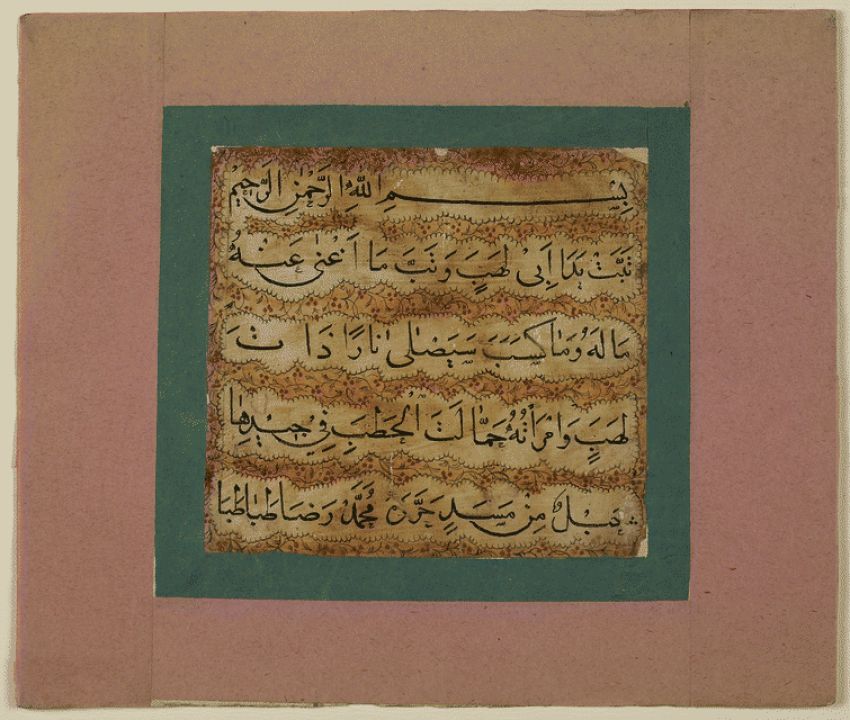 بِسْمِ اللهِ الرَّحْمٰنِ الرَّحِيْمِ
تَبَّتْ يَدَا اَبِىْ لَهَبٍ وَ تَبَّ مَا اَغْنٰى عَنْهُ
مَا لَهُ وَ مَا كَسَبَ سَيَصْلٰى نَارًا ذَاتَ
لَهَبٍ وَ امْرَأَتُهُ حَمَّالَتَ الْحَطَبِ فِىْ جِيْدِهَا
حَبْلٌ مِنْ مَسَدٍ حَرَّرَهُ مُحَمَّد رَضَا طَبَاطَبَا